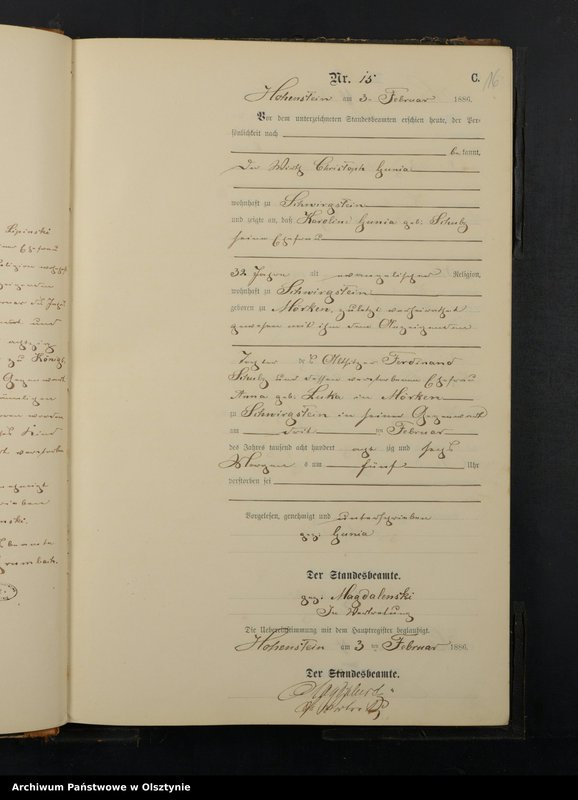 Nr. 15
C.
116
Hohenstein am 3. Februar 1886.
Vor dem unterzeichneten Standesbeamten erschien heute, der Per-
sönlichkeit nach
be kannt,
Der Wirth Christoph Gunia
wohnhaft zu Schwirgstein
und zeigte an, daß Karoline Gunia geb. Schulz
seine Ehefrau
32 Jahre alt evangelischer Religion,
wohnhaft zu Schwirgstein
geboren zu Mörken, zuletzt verheirathet
gewesen mit ihm dem Anzeigenden
Tochter des Altsitzer Ferdinand
Schulz und dessen verstorbenen Ehefrau
Anna geb. Lutka in Mörken
zu Schwirgstein in seiner Gegenwart
am drit ten Februar
des Jahres tausend acht hundert acht zig und sechs
Morgens um fünf Uhr
verstorben sei
Vorgelesen, genehmigt und unterschrieben
gez. Gunia
Der Standesbeamte.
gez. Magdalenski
In Vertretung
Die Uebereinstimmung mit dem Hauptregister beglaubigt.
Hohenstein am 3 ten Februar 1886.
Der Standesbeamte.
Lipinski
Ehefrau
Religion
und
zu
Gegenwart
worden
Kind
Archiwum Państwowe w Olsztynie